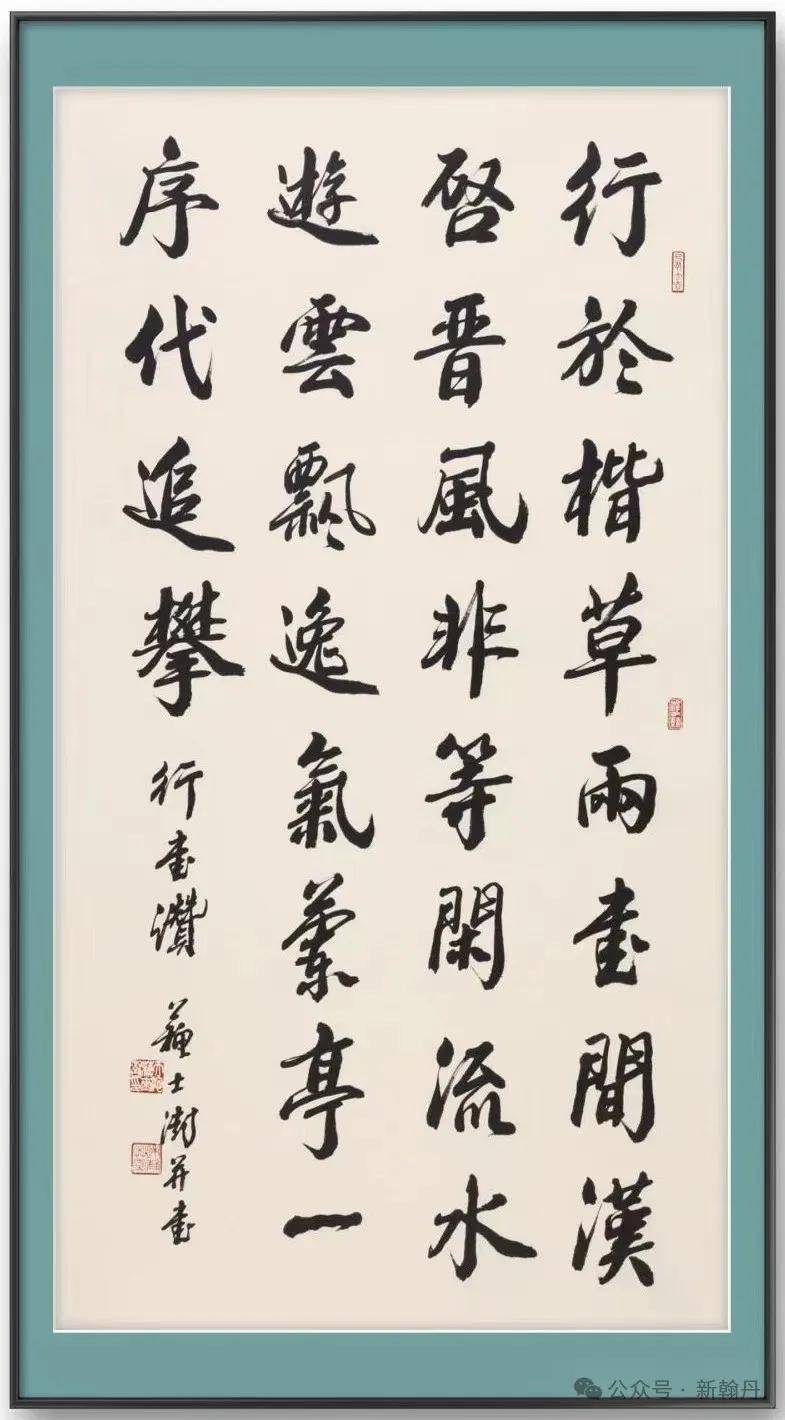 行於楷草兩書間漢
啓晋風非等閑流水
遊雲飄逸氣蘭亭一
序代追攀
行書讚 蘇士澍并書
公众号·新翰丹